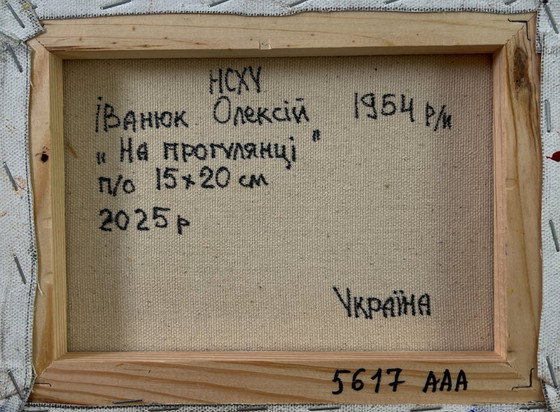 НСХУ
Іванюк Олексій 1954 р/н
„На прогулянці"
п/о 15×20 см
2025 р
Україна
5617 ААА